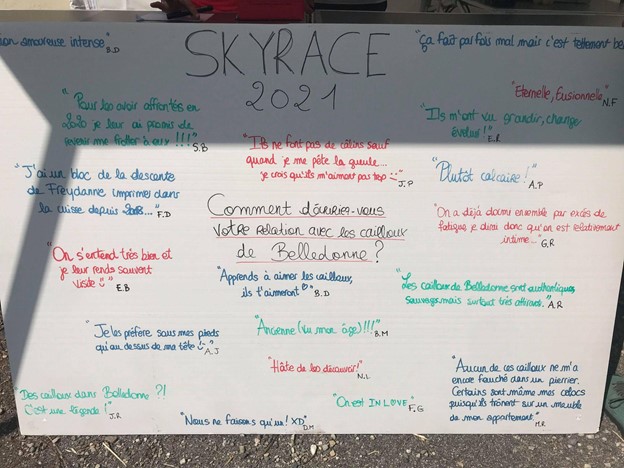 ion amoureuse intense" B.D
SKYRACE
2021
Ça fait parfois mal mais c'est tellement be
"Eternelle, fusionnelle" N.F
"Pour les avoir affrontés en
2020 je leur ai promis de
revenir me frotter à eux !!!" S.B
"Ils m'ont vu grandir, changer
évoluer!" E.R
"Ils ne font pas de câlins sauf
quand je me pète la gueule...
je crois qu'ils m'aiment pas trop" J.P
"Plutôt calcaire!" A.P
"J'ai un bloc de la descente
de Freydanne imprimée dans
la cuisse depuis 2018..." F.D
Comment décririez-vous
votre relation avec les cailloux
de Belledonne ?
"On a déjà dormi ensemble par excès de
fatigue je dirai donc qu'on est relativement
intime..." G.R
"On s'entend très bien et
je leur rends souvent
visite" E.B
"Apprends à aimer les cailloux,
ils t'aimeront" B.D
"Les cailloux de Belledonne sont authentiques,
sauvages mais surtout très attirants." A.R
"Je les préfère sous mes pieds
qu'au dessus de ma tête" A.J
"Ancienne (vu mon âge)!!!" B.M
"Hâte de les découvrir!" N.L
"Aucun de ces cailloux ne m'a
encore fauché dans un pierrier.
Certains sont même mes colocs
puisqu'ils trônent sur un meuble
de mon appartement" M.R
"Des cailloux dans Belledonne ?!
C'est une légende!" J.R
"On est IN LOVE" F.G
"Nous ne faisons qu'un! XD" D.M